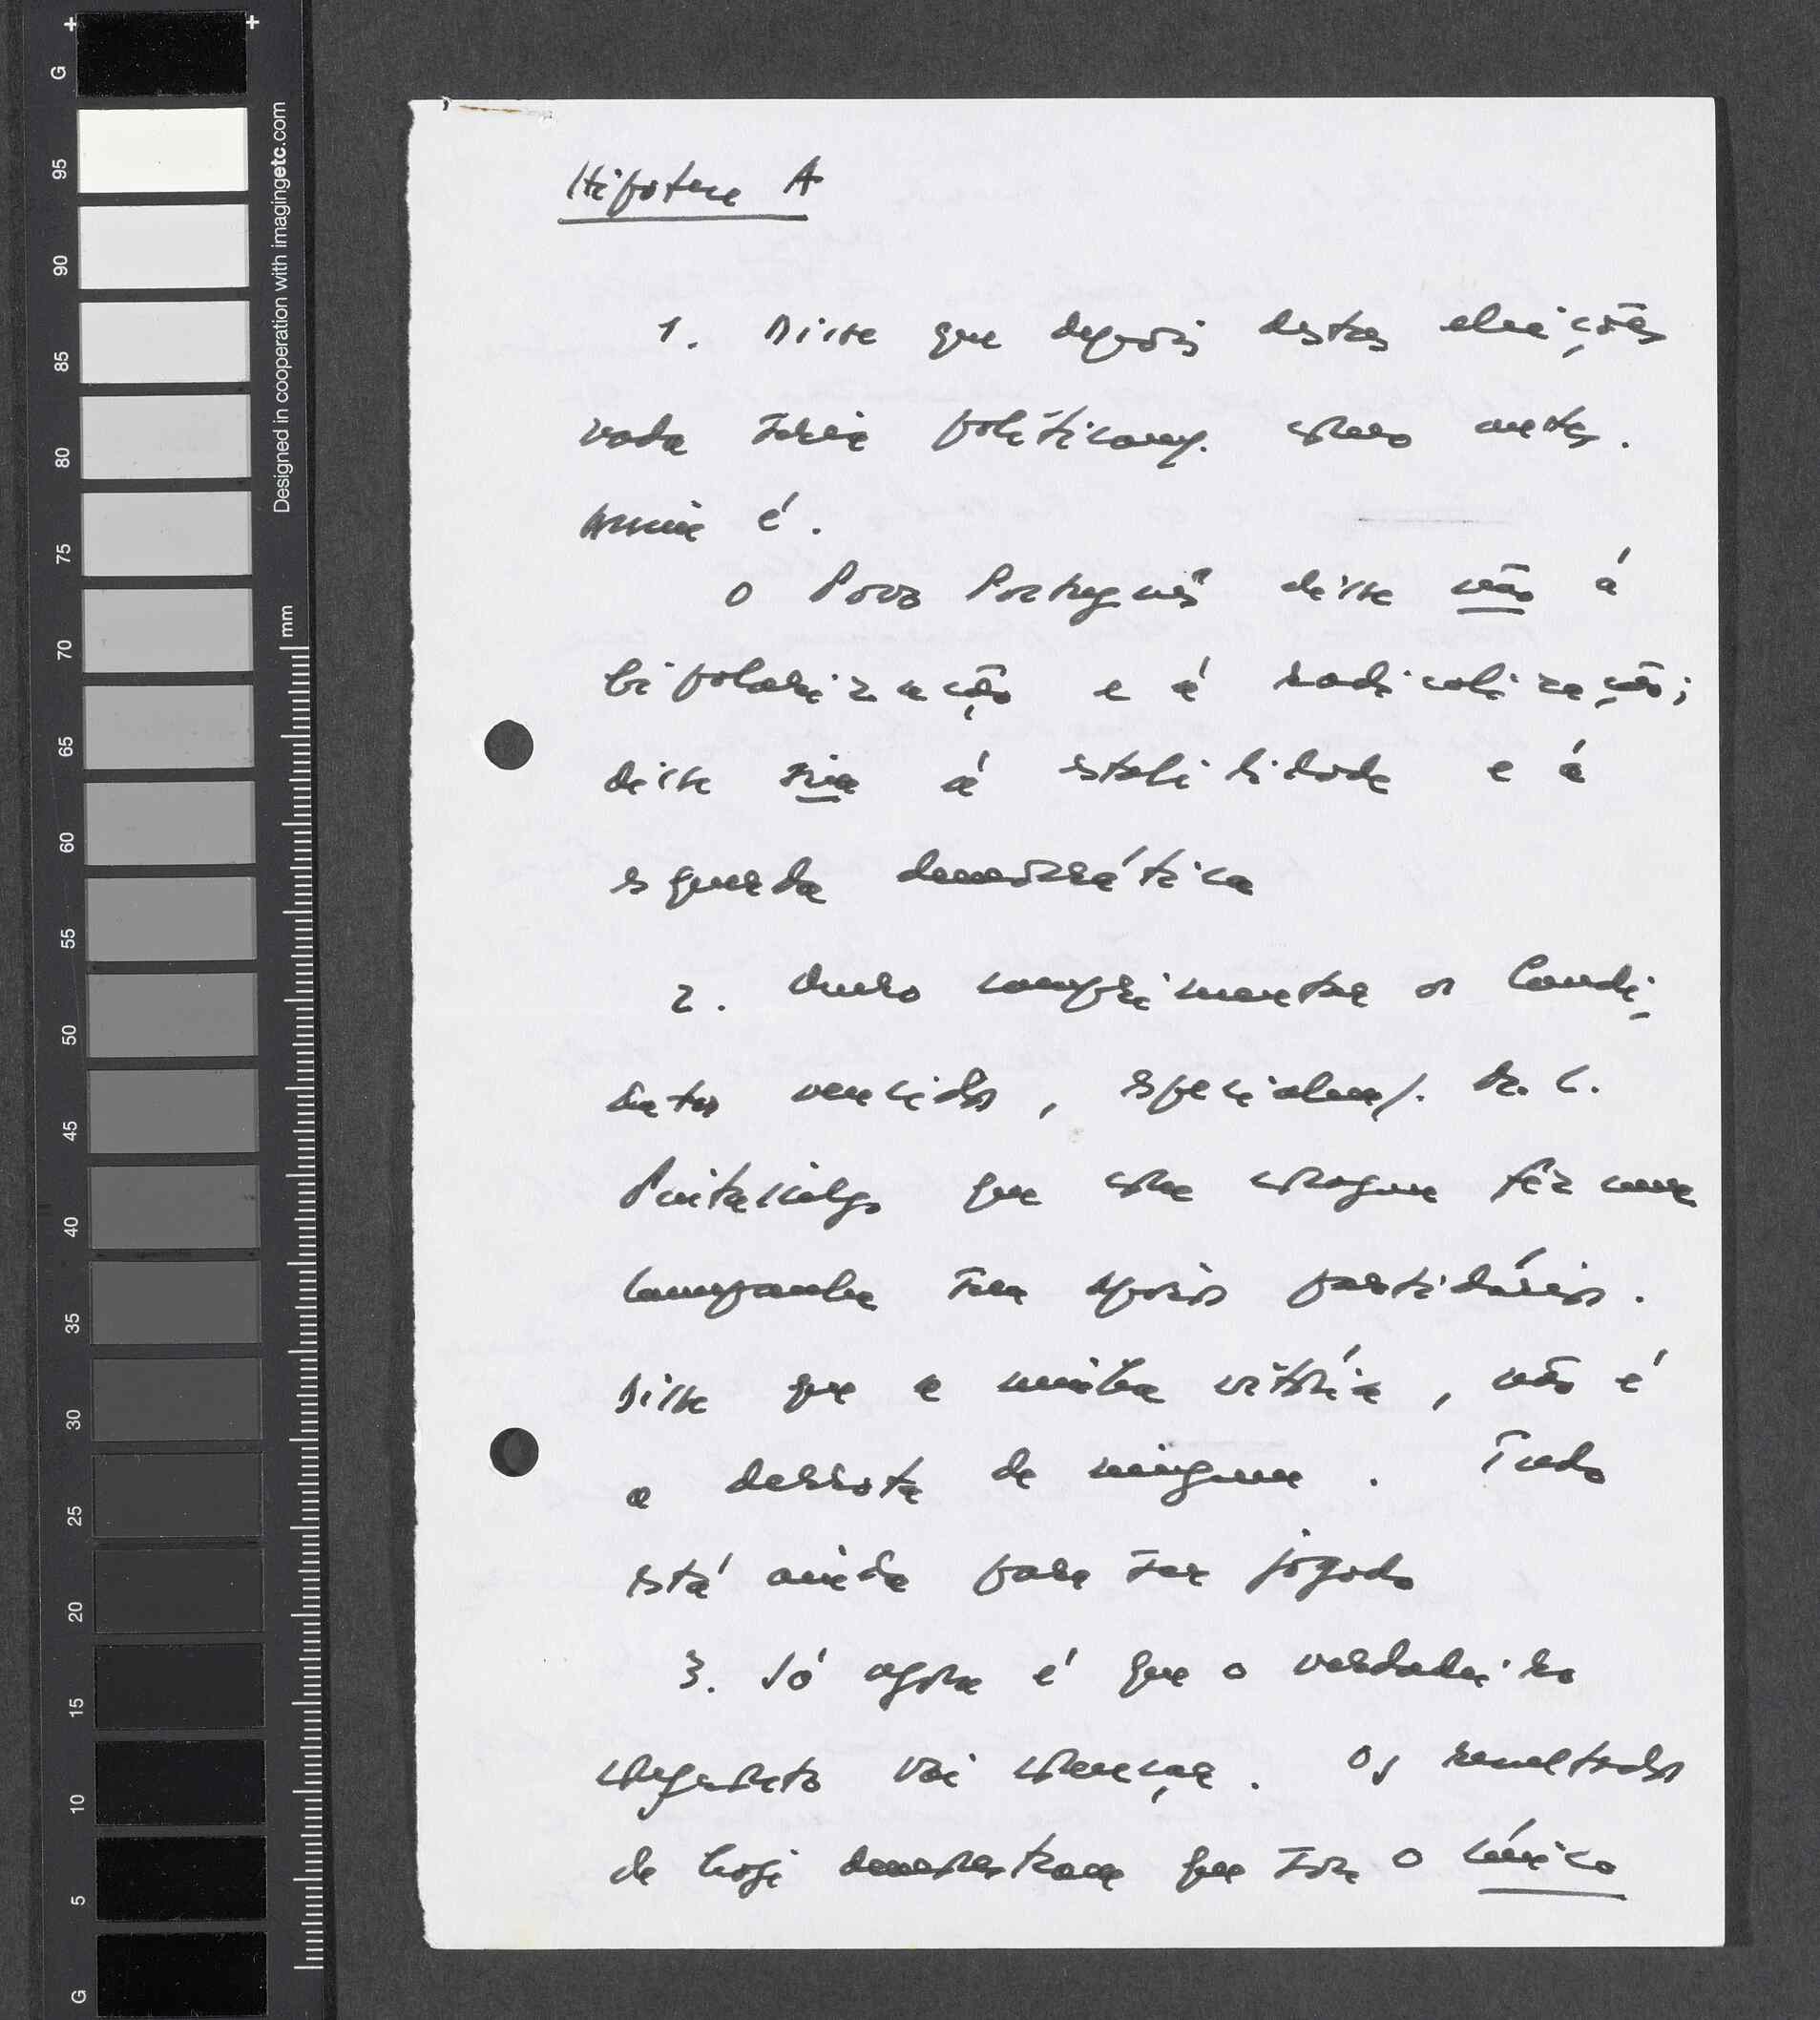 G
95
90
85
80
75
70
65
60
55
50
45
40
35
30
25
20
15
10
5
G
Designed in cooperation with imagingetc.com
mm
Hipótese A
1. Disse que depois destas eleições
nada seria politicam/. como antes.
Assim é.
O Povo Português disse não à
bipolarização e à radicalização;
disse sim à estabilidade e à
esquerda democrática
2. Quero comprimentar os Candi-
datos vencidos, especialmen/. L.
Pintasilgo que com coragem fez uma
campanha sem apoios partidários.
Disse que a minha vitória, não é
a derrota de ninguem. Tudo
está ainda para ser jogado
3. Só agora é que o verdadeiro
confronto vai começar. Os resultados
de hoje demonstram que sou o único